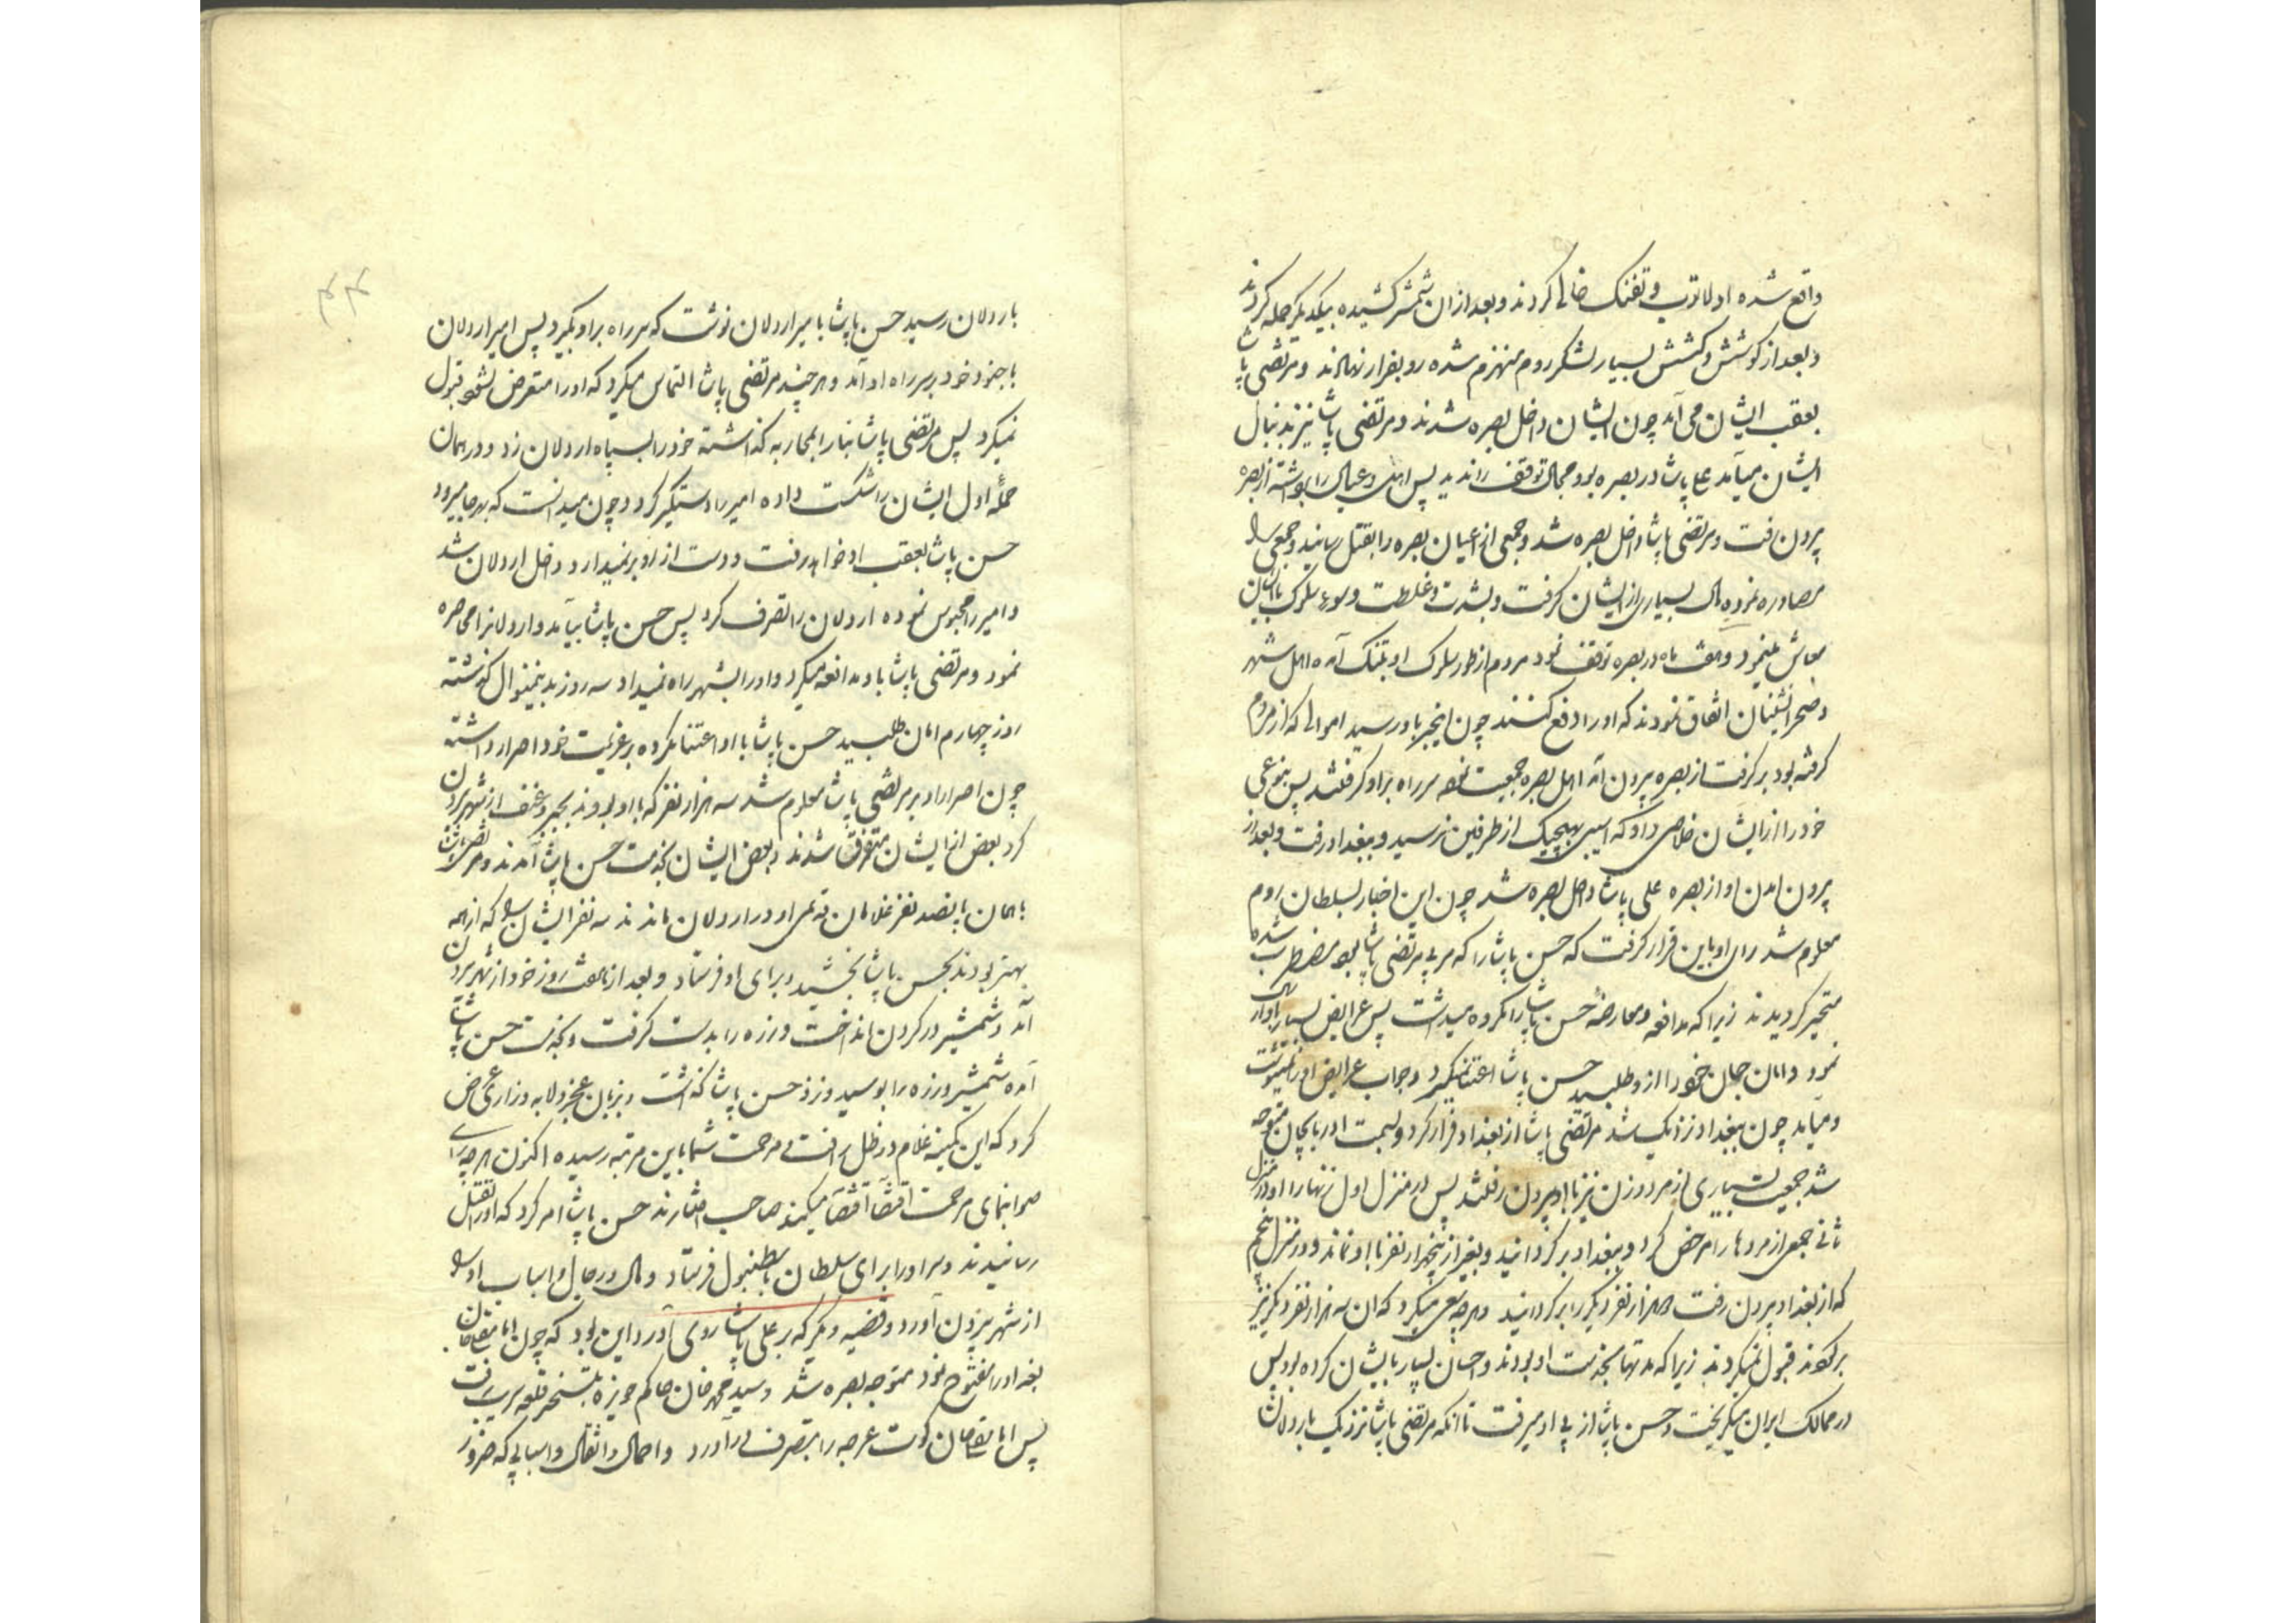 واقع شده اولا توپ و تفنک خالی کردند و بعد از ان شمشیر کشیده بیکدیکر حمله کردند
و بعد از کوشش و کشش بسیار لشکر روم منهزم شده رو بفرار نهادند و مرتضی پاشا
بعقب ایشان می آمد چون ایشان داخل بصره شدند و مرتضی پاشا نیز بدنبال
ایشان میآمد علی پاشا در بصره بود مجال توقف را ندید پس اهل و عیال را برداشته از بصره
بیرون رفت و مرتضی پاشا داخل بصره شد و جمعی از اعیان بصره را بقتل رسانید و جمعی را
مصادره نموده مال بسیاری از ایشان کرفت و بشدت و غلظت و سوء سلوک با ایشان
معاش مینمود و هفت ماه در بصره توقف نمود مردم از طور سلوک او بتنک آمده اهل شهر
و صحرانشینان اتفاق نمودند که او را دفع کنند چون اینخبر باو رسید اموالی که از مردم
کرفته بود بر کرفت از بصره بیرون آمد اهل بصره جمعیت نموده سر راه بر او کرفتند پس بنوعی
خود را از ایشان خلاصی داد که آسیبی بهیچیک از طرفین نرسید و ببغداد رفت و بعد از
بیرون امدن او از بصره علی پاشا داخل بصره شد چون این اخبار بسلطان روم
معلوم شد رای او باین قرار کرفت که حسن پاشا را که مربی مرتضی پاشا بود مضطرب شده
متحیر کردیدند زیرا که مدافعه و معارضهٔ حسن پاشا را مکروه میداشت پس عرایض بسیار باو ارسال
نمود و امان جان خود را از و طلبید حسن پاشا اعتنا نمیکرد و جواب عرایض او را نمینوشت
و میآمد چون ببغداد نزدیک شد مرتضی پاشا از بغداد فرار کرد و بسمت اذربایجان متوجه
شد جمعیت بسیاری از مرد و زن نیز با او بیرون رفتند پس در منزل اول زنها را و در منزل
ثانی جمعی از مردها را مرخص کرد و ببغداد بر کردانید و بغیر از پنجهزار نفر با او نماند و در منزل پنجم
که از بغداد بیرون رفت دو هزار نفر دیکر را بر کردانید و هر چه سعی میکرد که ان سه هزار نفر دیکر نیز
بر کردند قبول نمیکردند زیرا که مدتها بخدمت او بودند و احسان بسیار بایشان کرده بود پس
در ممالک ایران میکریخت و حسن پاشا از پی او میرفت تا انکه مرتضی پاشا نزدیک باردلان
باردلان رسید حسن پاشا بامیر اردلان نوشت که سر راه بر او بکیرد پس امیر اردلان
با جنود خود بر سر راه او آمد و هر چند مرتضی پاشا التماس میکرد که او را متعرض نشود قبول
نمیکرد پس مرتضی پاشا بنا را بمحاربه کذاشته خود را بسپاه اردلان زد و در همان
حملهٔ اول ایشان را شکست داده امیر را دستکیر کرد و چون میدانست که بهر جا میرود
حسن پاشا بعقب او خواهد رفت و دست از او بر نمیدارد داخل اردلان شد
و امیر را محبوس نموده اردلان را تصرف کرد پس حسن پاشا بیآمد و اردلانرا محاصره
نمود و مرتضی پاشا با او مدافعه میکرد و او را بشهر راه نمیداد سه روز بدینمنوال کذشته
روز چهارم امان طلبید حسن پاشا باو اعتنا نکرده بر عزیمت خود اصرار داشته
چون اصرار او بر مرتضی پاشا معلوم شد سه هزار نفر که با او بودند بجبر و عنف از شهر بیرون
کرد بعض از ایشان متفرق شدند و بعض ایشان بخدمت حسن پاشا آمدند و مرتضی پاشا
با همان پانصد نفر غلامان قدیمی او در اردلان ماندند سه نفر ایشان را که از همه
بهتر بودند بحسن پاشا بخشید و برای او فرستاد و بعد از هفت روز خود از شهر بیرون
آمد و شمشیر در کردن انداخت و زره را بدست کرفت و بخدمت حسن پاشا
آمده شمشیر و زره را بوسید و نزد حسن پاشا کذاشت و بزبان عجز و لابه و زاری عرض
کرد که این کمینه غلام در ظل رافت و مرحمت شما باین مرتبه رسیده اکنون هر چه رای
صوابنمای مرحمت اقتضا اقتضا میکند صاحب اختیارند حسن پاشا امر کرد که او را بقتل
رسانیدند و سر او را برای سلطان باسطنبول فرستاد و مال و رجال و اسباب او را
از شهر بیرون آورد و قضیه دیکر که بر علی پاشا روی آورد این بود که چون امامقلیخان
بغداد را مفتوح نمود متوجه بصره شد و سید محمد خان حاکم حویزه بتسخیر قلعه سریب رفت
پس امامقلیخان کوت عرجه را بتصرف در آورد و احمال و اثقال و اسبابی که ضرور